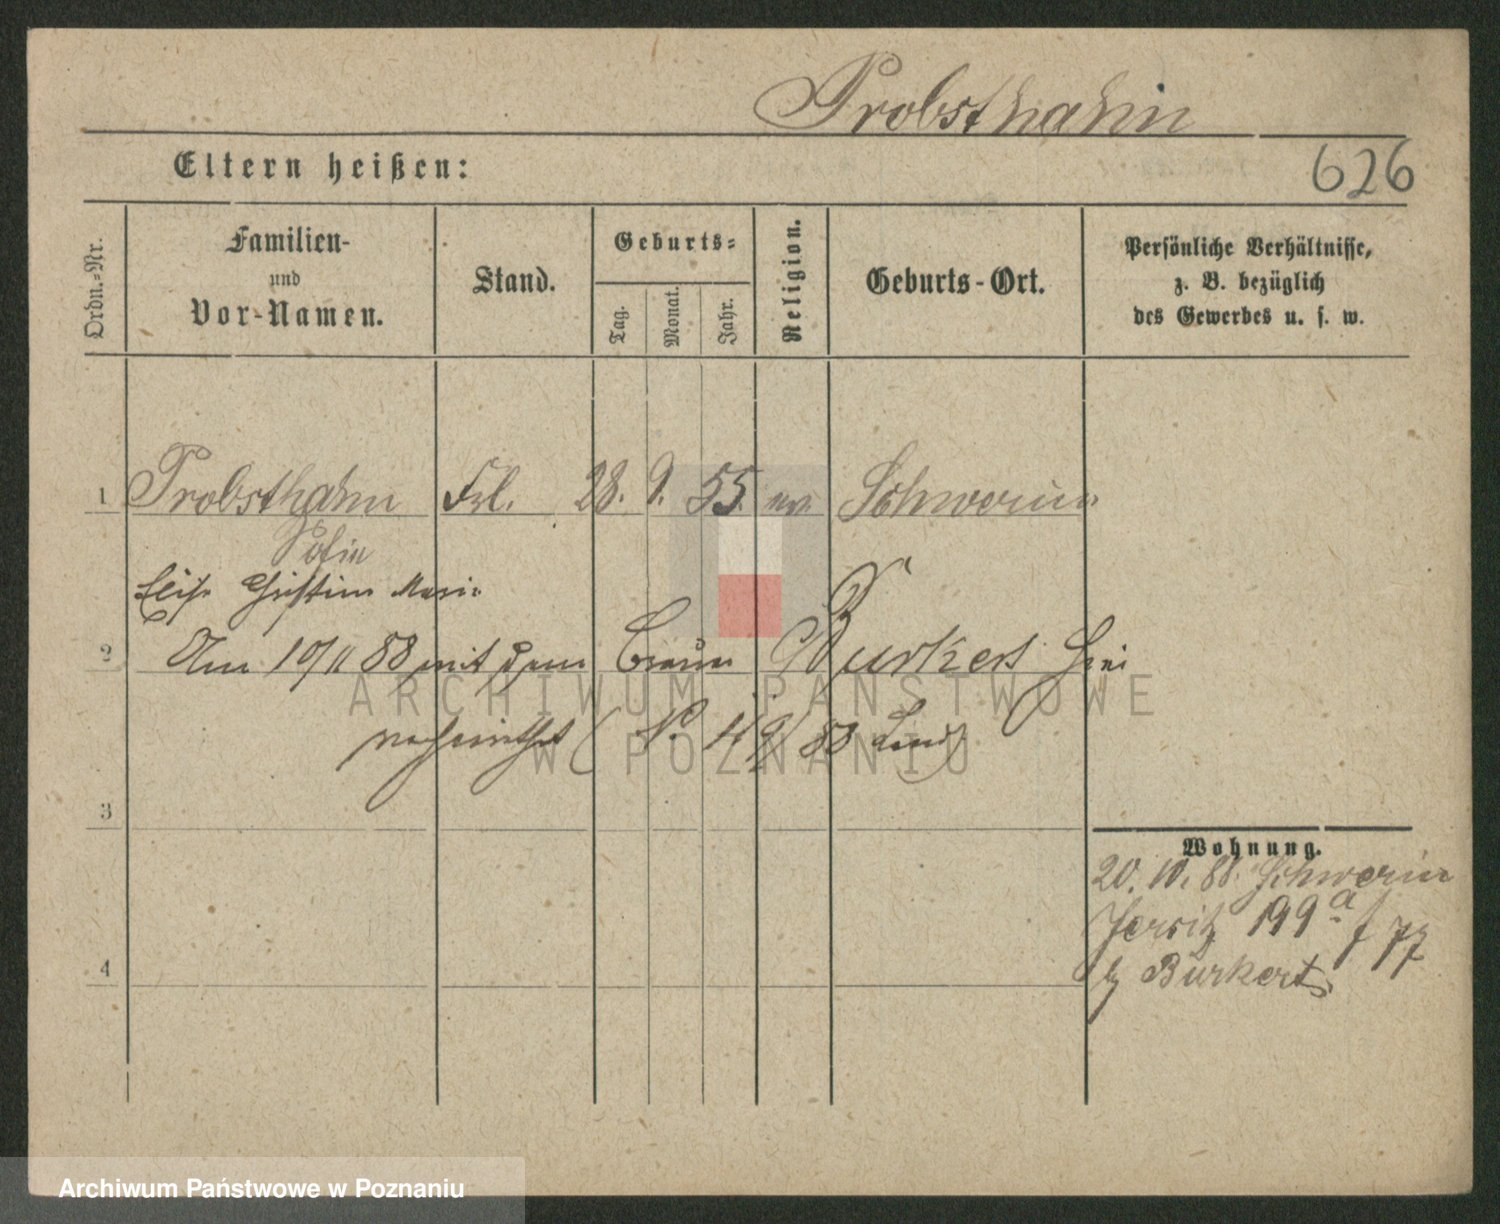 Probsthahn
Eltern heißen:
626
Ordn.-Nr.
Familien-
und
Vor-Namen.
Stand.
Geburts-
Tag.
Monat.
Jahr.
Religion.
Geburts-Ort.
Persönliche Verhältnisse,
z. B. bezüglich
des Gewerbes u. s. w.
1 Probsthahn Frl. 28. 9. 55. ev. Schwerin
Sofie
Elise Christine Marie
2 Am 10/11 88 mit dem Burkert hier
verheirathet (N. 49/88
3
Wohnung.
20. 10. 88. Schwerin
Jersitz 199a
Burkert
4
ARCHIWUM PAŃSTWOWE
W POZNANIU
Archiwum Państwowe w Poznaniu